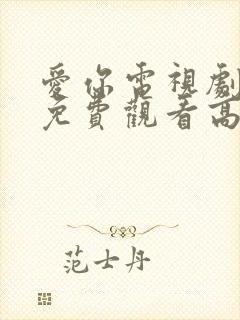 愛你電視劇
免費觀看高
范士丹